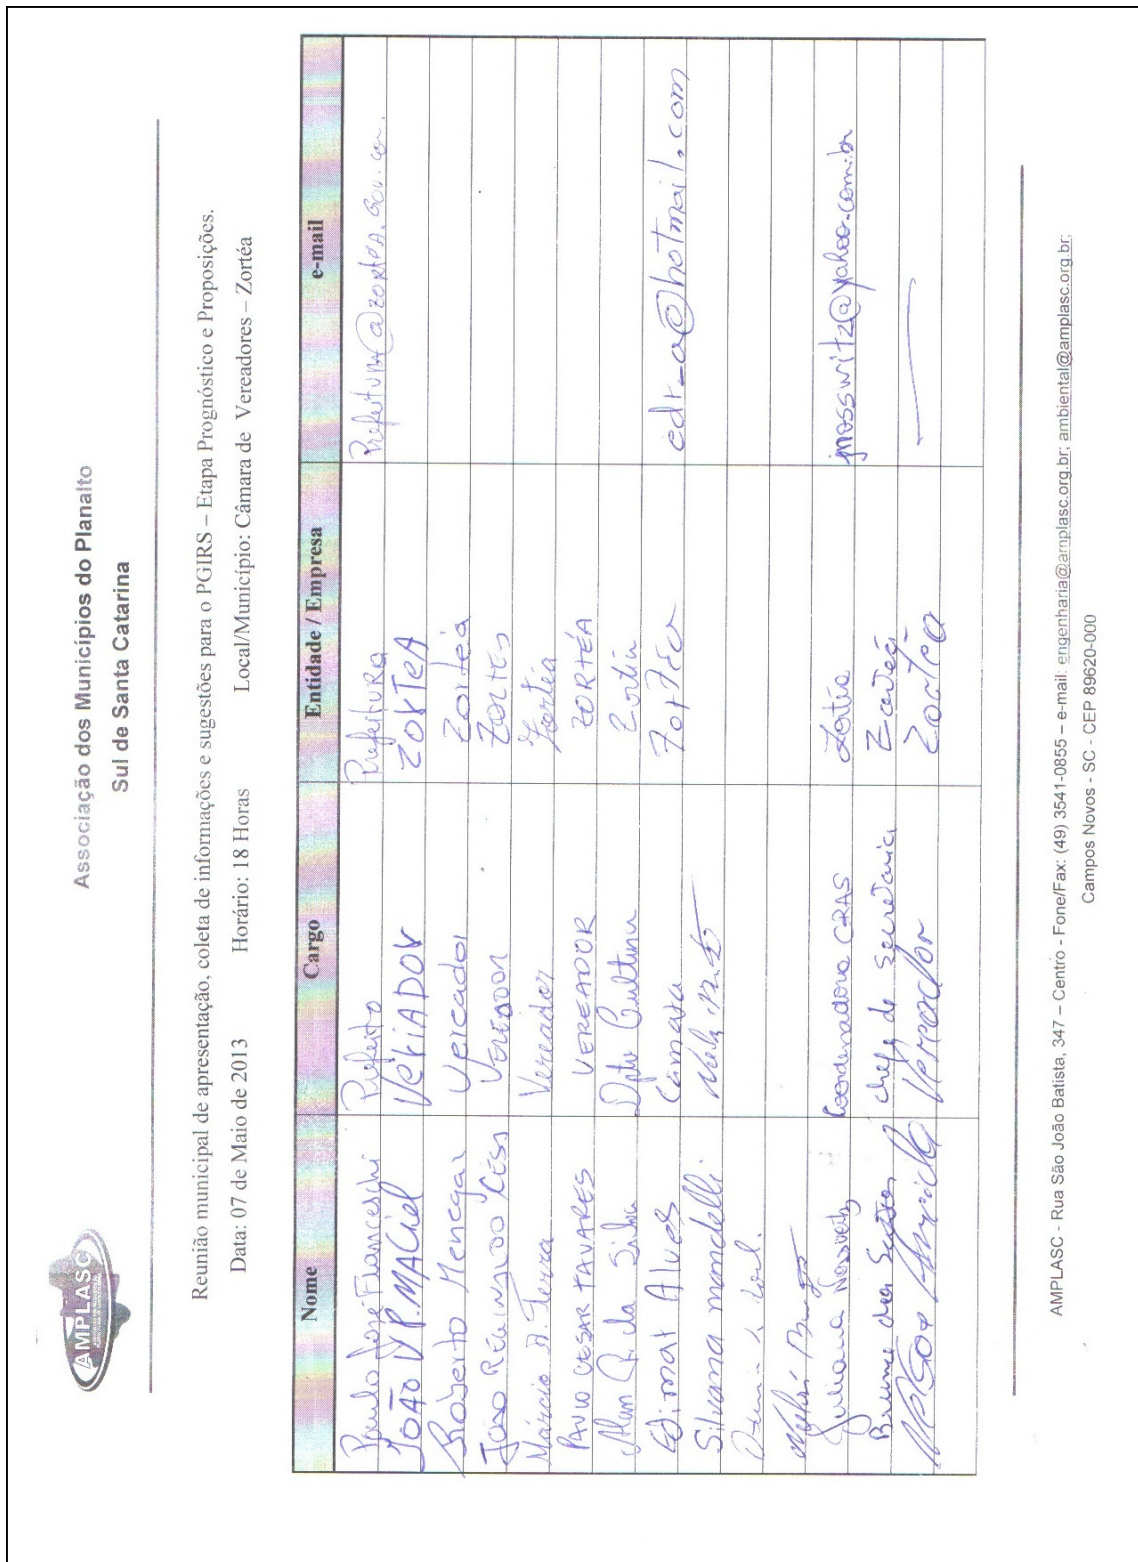 AMPLASC
Associação dos Municípios do Planalto
Sul de Santa Catarina
Reunião municipal de apresentação, coleta de informações e sugestões para o PGIRS – Etapa Prognóstico e Proposições.
Data: 07 de Maio de 2013 Horário: 18 Horas Local/Município: Câmara de Vereadores – Zortéa
Nome Cargo Entidade / Empresa e-mail
Paulo José Franceschi Prefeito Prefeitura
JOÃO P. MACIEL VERIADOR ZORTEA
Roberto Menegaz Vereador Zorteá
João Vereador
Márcio A. Terra Vereador Zortéa
PAULO CESAR TAVARES VEREADOR ZORTÉA
Alan da Silva Dpto Cultura Zortéa
Edimar Alves Câmara Zortéa edi_a@hotmail.com
Silvana mandelli
Juliana Coordenadora CRAS Zortéa
Bruna dos Santos chefe de Secretaria
Vereador Zortéa
AMPLASC - Rua São João Batista, 347 – Centro - Fone/Fax: (49) 3541-0855 – e-mail: engenharia@amplasc.org.br; ambiental@amplasc.org.br;
Campos Novos - SC - CEP 89620-000